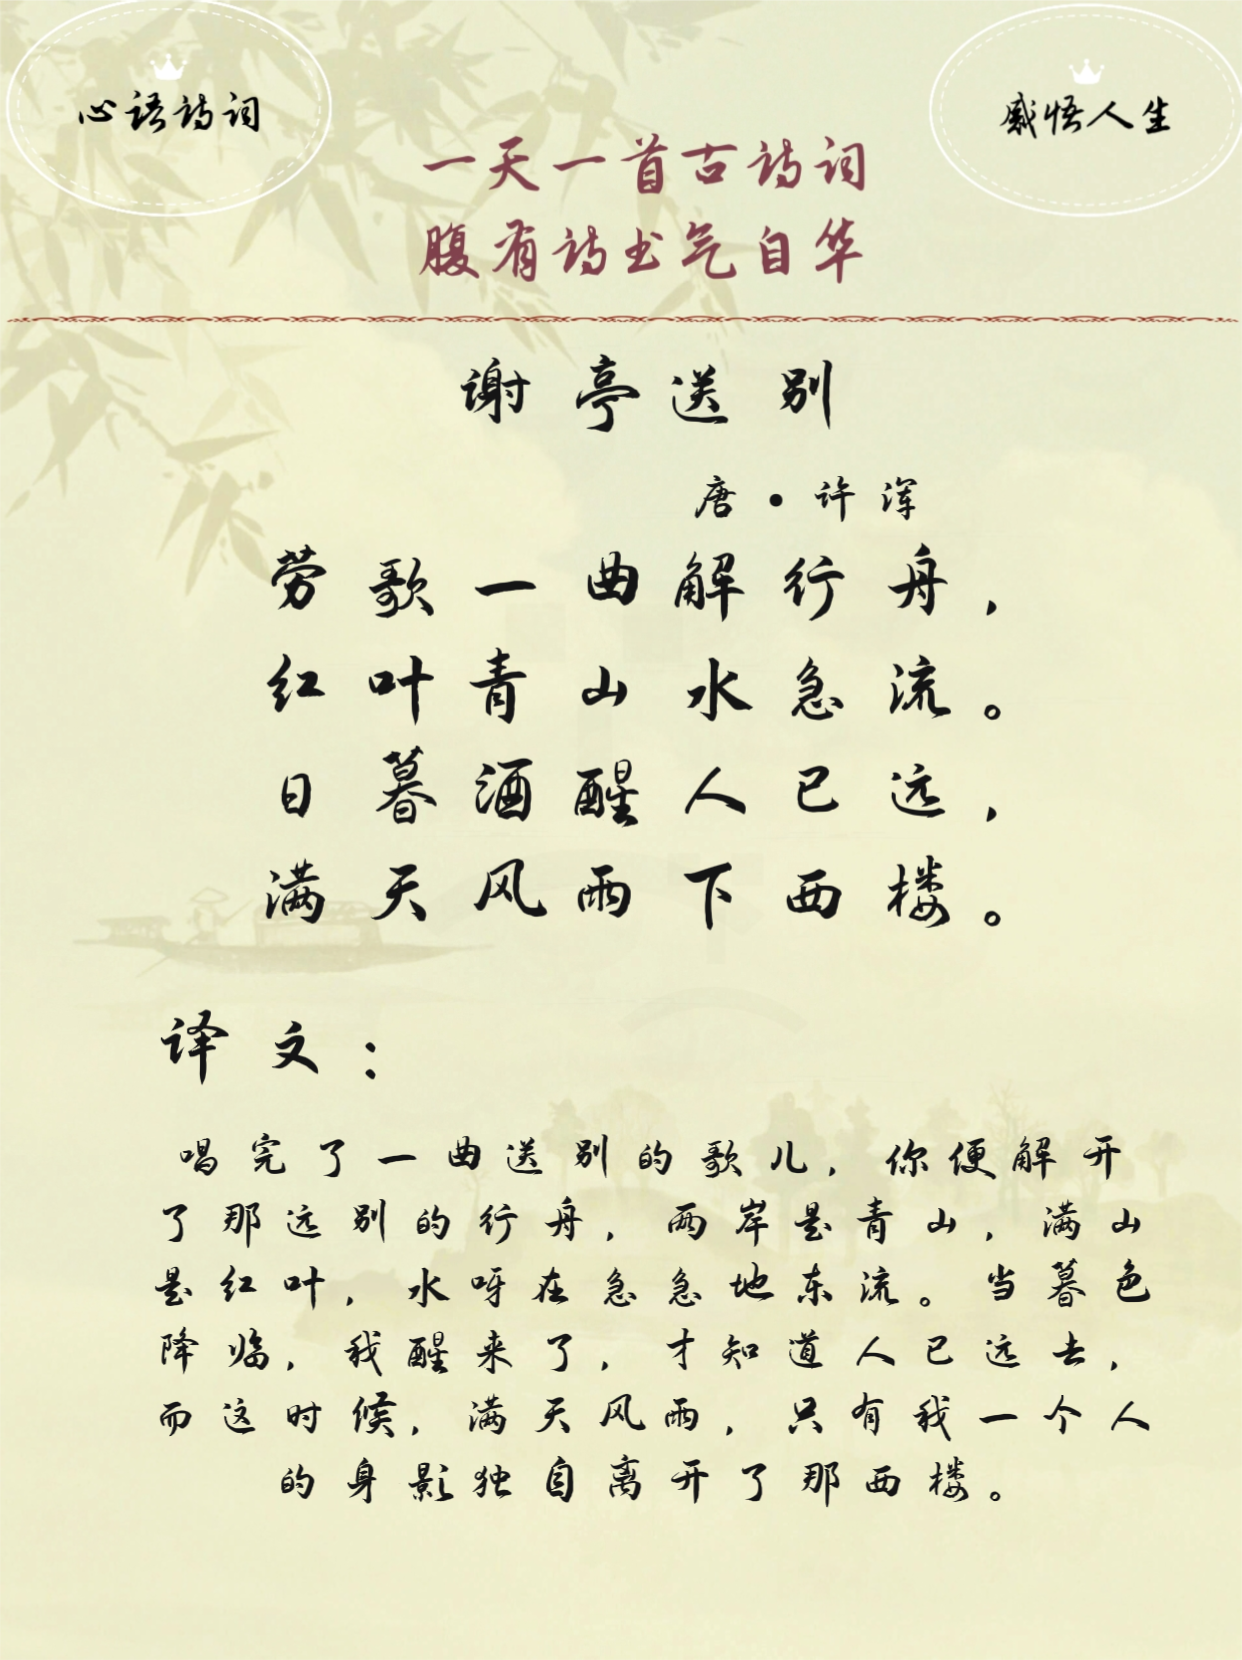 心语诗词
感悟人生
一天一首古诗词
腹有诗书气自华
谢亭送别
唐·许浑
劳歌一曲解行舟，
红叶青山水急流。
日暮酒醒人已远，
满天风雨下西楼。
译文：
唱完了一曲送别的歌儿，你便解开
了那远别的行舟，两岸是青山，满山
是红叶，水呀在急急地东流。当暮色
降临，我醒来了，才知道人已远去，
而这时候，满天风雨，只有我一个人
的身影独自离开了那西楼。